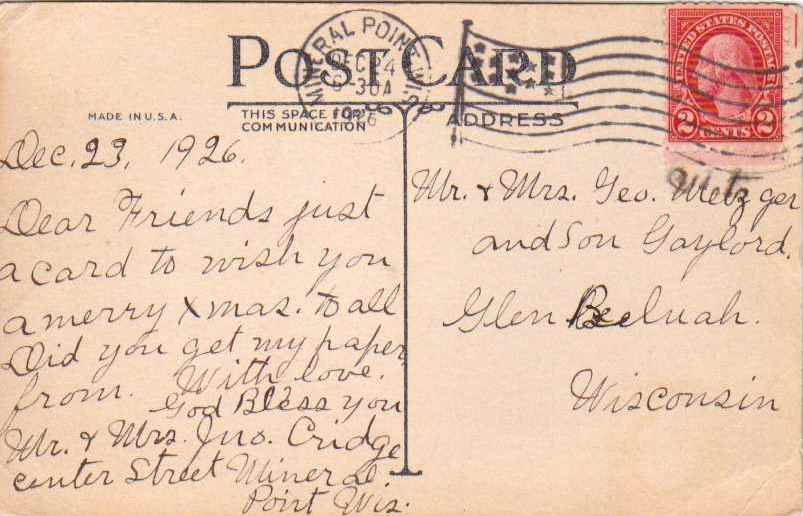 POST CARD
MINERAL POINT WIS.
DEC 24
30A
1926
UNITED STATES POSTAGE
2 CENTS 2
MADE IN U.S.A.
THIS SPACE FOR
COMMUNICATION
ADDRESS
Dec. 23, 1926.
Dear Friends just
a card to wish you
a merry Xmas. to all
Did you get my paper
from. With love.
God Bless you
Mr. & Mrs. Jno. Cridge
center Street Mineral
Point Wis.
Mr. & Mrs. Geo. Metzger
and Son Gaylord.
Glen Beeluah.
Wisconsin